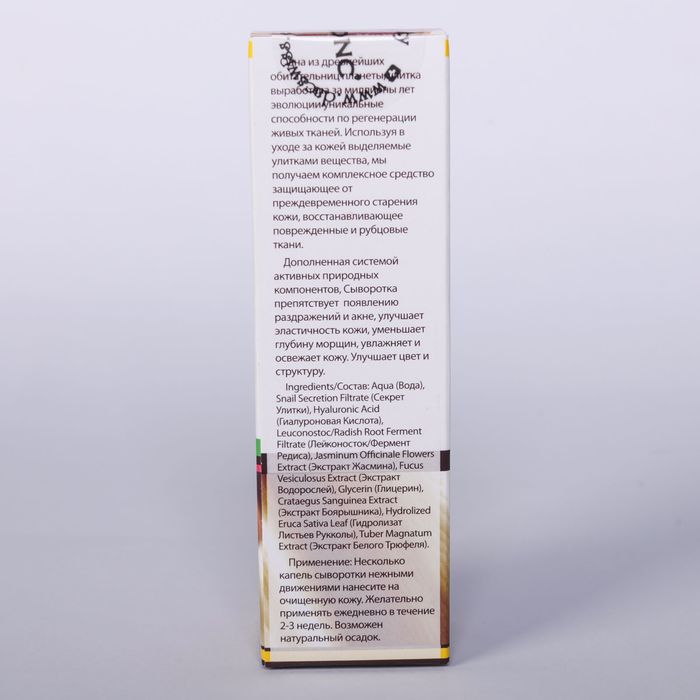 из древнейших
обительниц планеты, улитка
выработала за миллионы лет
эволюции уникальные
способности по регенерации
живых тканей. Используя в
уходе за кожей выделяемые
улитками вещества, мы
получаем комплексное средство
защищающее от
преждевременного старения
кожи, восстанавливающее
поврежденные и рубцовые
ткани.
Дополненная системой
активных природных
компонентов, Сыворотка
препятствует появлению
раздражений и акне, улучшает
эластичность кожи, уменьшает
глубину морщин, увлажняет и
освежает кожу. Улучшает цвет и
структуру.
Ingredients/Состав: Aqua (Вода),
Snail Secretion Filtrate (Секрет
Улитки), Hyaluronic Acid
(Гиалуроновая Кислота),
Leuconostoc/Radish Root Ferment
Filtrate (Лейконосток/Фермент
Редиса), Jasminum Officinale Flowers
Extract (Экстракт Жасмина), Fucus
Vesiculosus Extract (Экстракт
Водорослей), Glycerin (Глицерин),
Crataegus Sanguinea Extract
(Экстракт Боярышника), Hydrolized
Eruca Sativa Leaf (Гидролизат
Листьев Рукколы), Tuber Magnatum
Extract (Экстракт Белого Трюфеля).
Применение: Несколько
капель сыворотки нежными
движениями нанесите на
очищенную кожу. Желательно
применять ежедневно в течение
2-3 недель. Возможен
натуральный осадок.